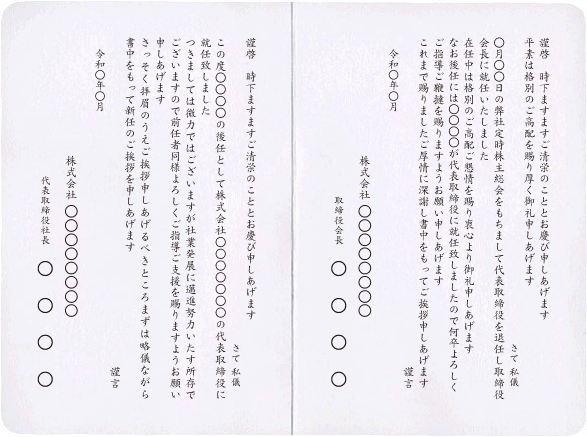 謹啓　時下ますますご清栄のこととお慶び申しあげます
平素は格別のご高配を賜り厚く御礼申しあげます
さて 私儀
〇月〇〇日の弊社定時株主総会をもちまして代表取締役を退任し取締役
会長に就任いたしました
在任中は格別のご高配ご懇情を賜り衷心より御礼申しあげます
なお後任には〇〇〇〇が代表取締役に就任致しましたので何卒よろしく
ご指導ご鞭撻を賜りますようお願い申しあげます
これまで賜りましたご厚情に深謝し書中をもってご挨拶申しあげます
謹言
令和〇年〇月
株式会社 〇〇〇〇〇〇〇
取締役会長 〇〇〇〇
謹啓　時下ますますご清栄のこととお慶び申しあげます
さて 私儀
この度〇〇〇〇の後任として株式会社〇〇〇〇〇〇〇の代表取締役に
就任致しました
つきましては微力ではございますが社業発展に邁進努力いたす所存で
ございますので前任者同様よろしくご指導ご支援を賜りますようお願い
申しあげます
さっそく拝眉のうえご挨拶申しあげるべきところまずは略儀ながら
書中をもって新任のご挨拶を申しあげます
謹言
令和〇年〇月
株式会社 〇〇〇〇〇〇〇
代表取締役社長 〇〇〇〇